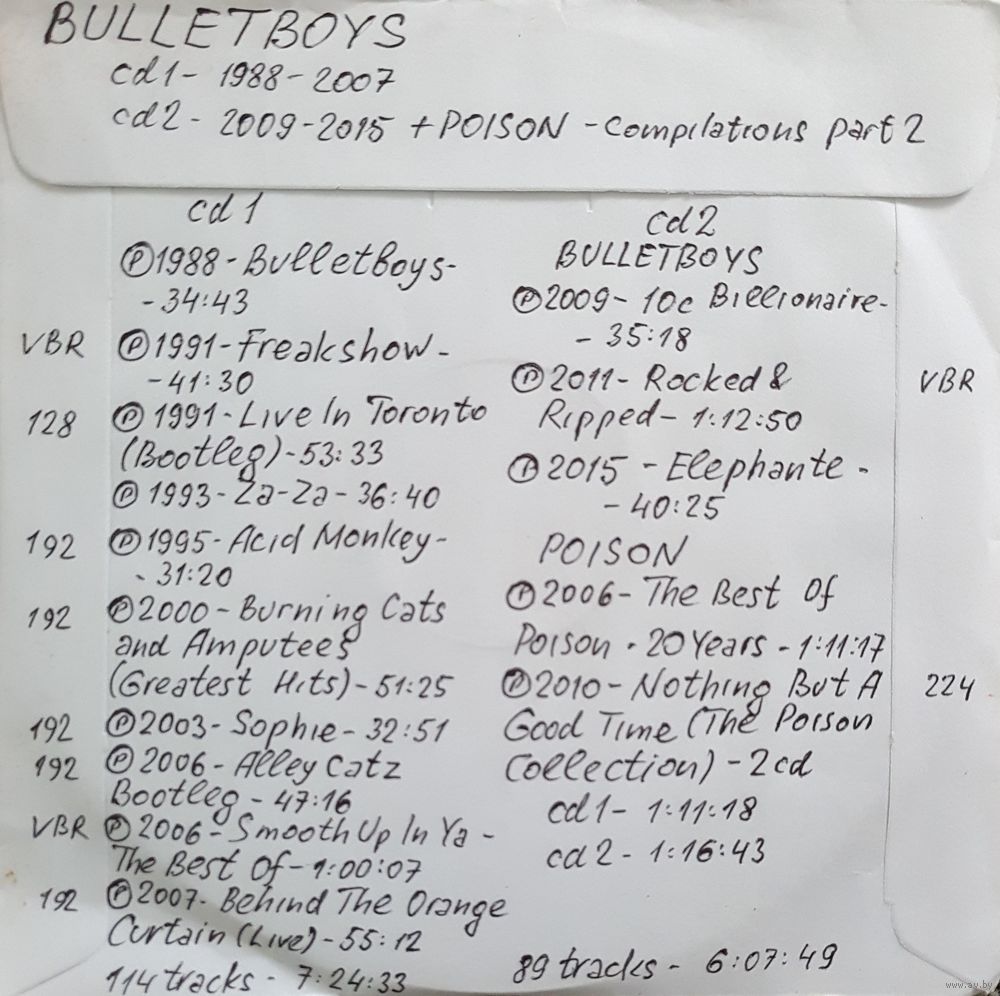 BULLETBOYS
cd1 - 1988 - 2007
cd2 - 2009-2015 + POISON - Compilations part 2
cd 1
Ⓟ1988 - BulletBoys-
- 34:43
VBR Ⓟ1991 - Freakshow -
- 41:30
128 Ⓟ 1991 - Live In Toronto
(Bootleg) - 53:33
Ⓟ 1993 - Za-Za - 36:40
192 Ⓟ1995 - Acid Monkey -
- 31:20
192 Ⓟ2000 - Burning Cats
and Amputees
(Greatest Hits) - 51:25
192 Ⓟ2003 - Sophie - 32:51
192 Ⓟ 2006 - Alley Catz
Bootleg - 47:16
VBR Ⓟ 2006 - Smooth Up In Ya -
The Best Of - 1:00:07
192 Ⓟ2007. Behind The Orange
Curtain (Live) - 55:12
114 tracks - 7:24:33
cd2
BULLETBOYS
Ⓟ2009 - 10c Billionaire -
- 35:18
Ⓟ2011 - Rocked & VBR
Ripped - 1:12:50
Ⓟ2015 - Elephante -
- 40:25
POISON
Ⓟ2006 - The Best Of
Poison · 20 Years - 1:11:17
Ⓟ2010 - Nothing But A 224
Good Time (The Poison
Collection) - 2cd
cd1 - 1:11:18
cd2 - 1:16:43
89 tracks - 6:07:49
www.ay.by